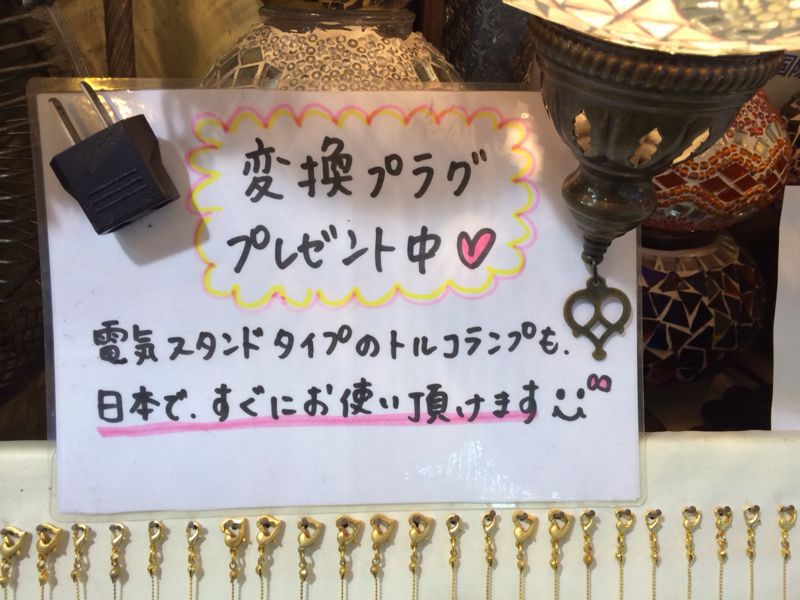 変換プラグ
プレゼント中
電気スタンドタイプのトルコランプも、
日本で、すぐにお使い頂けます